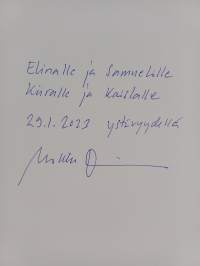 Elinalle ja Samuelille
Kiiralle ja Kaislalle
29.1.2023 ystävyydellä